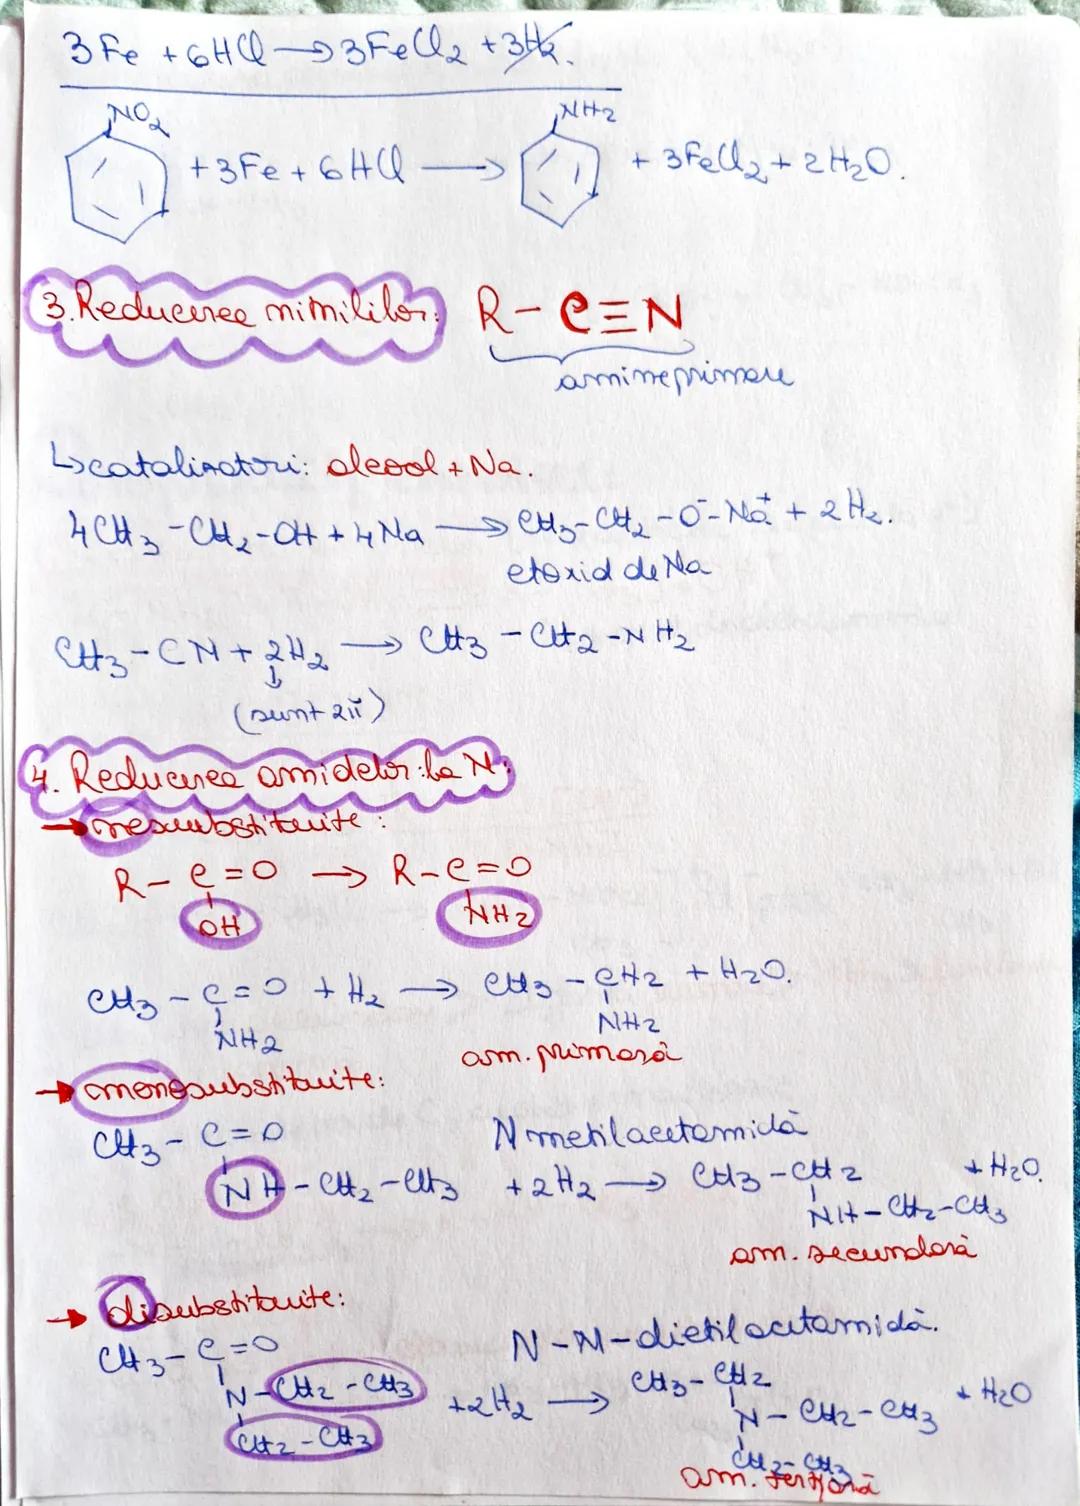 3Fe + 6HCl → 3FeCl₂ + 3H₂.
NO₂ NH₂
+ 3Fe + 6HCl → + 3FeCl₂ + 2H₂O.
3. Reducerea nitrililor: R - C≡N
amine primare
↳ catalizatori: alcool + Na.
4CH₃-CH₂-OH + 4Na → CH₃-CH₂-O⁻-Na⁺ + 2H₂.
etoxid de Na
CH₃-CN + 2H₂ → CH₃-CH₂-NH₂
↓
(sunt 2π)
4. Reducerea amidelor: la N:
→ nesubstituite:
R-C=O → R-C=O
OH NH₂
CH₃-C=O + H₂ → CH₃-CH₂ + H₂O.
NH₂ NH₂
am. primară
→ monosubstituite:
CH₃-C=O N metilacetamidă
NH-CH₂-CH₃ + 2H₂ → CH₃-CH₂ + H₂O.
NH-CH₂-CH₃
am. secundară
→ disubstituite:
CH₃-C=O N-N-dietilacetamidă.
N-CH₂-CH₃ + 2H₂ → CH₃-CH₂ + H₂O
N-CH₂-CH₃
CH₂-CH₃ CH₂-CH₃
am. terțiară